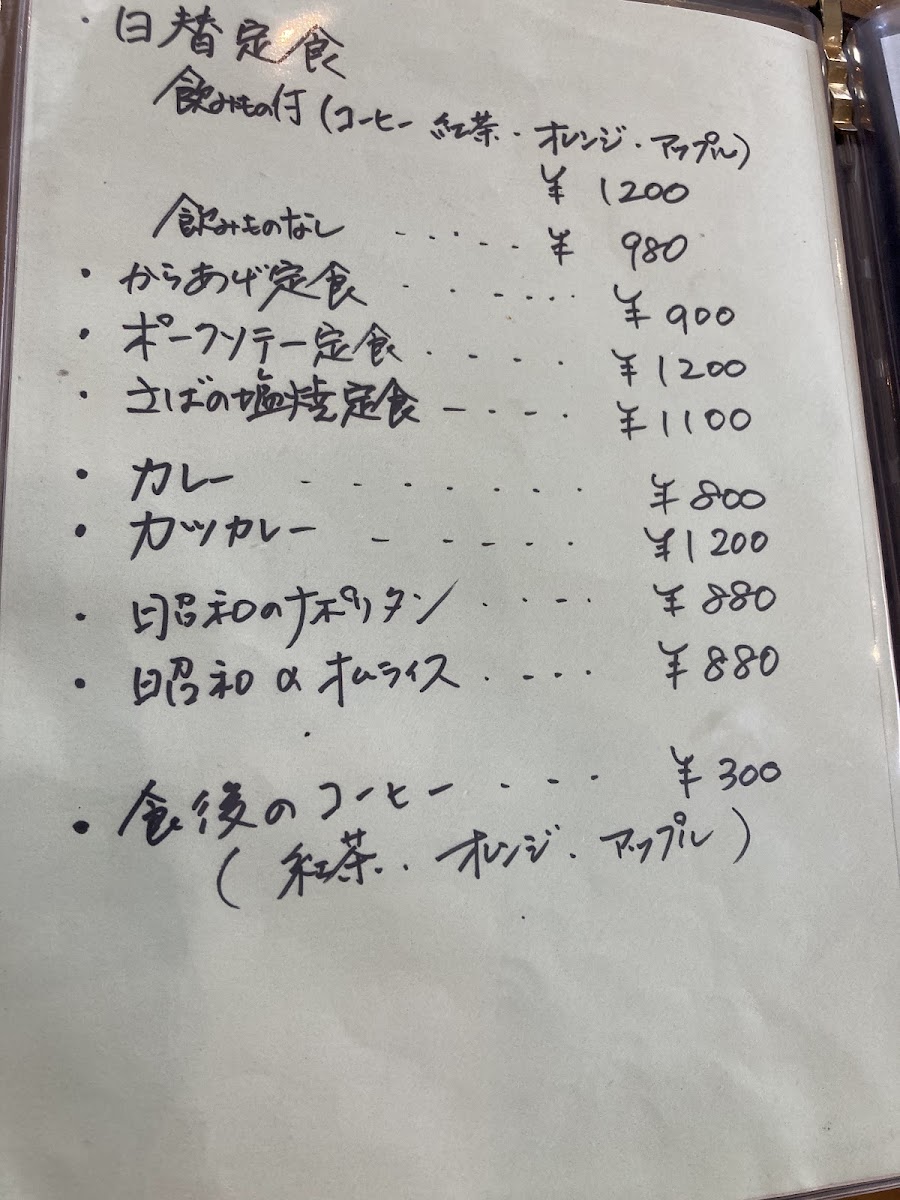 ・日替定食
飲みもの付(コーヒー 紅茶・オレンジ・アップル)
¥ 1200
飲みものなし ・・・・・・ ¥ 980
・からあげ定食 ・・・・・・ ¥900
・ポークソテー定食 ・・・・ ¥1200
・さばの塩焼定食 ー・・・ ¥1100
・カレー ・・・・・・・ ¥800
・カツカレー ー・・・・ ¥1200
・昭和のナポリタン ・・・・ ¥880
・昭和のオムライス ・・・・ ¥880
・食後のコーヒー ・・・ ¥300
(紅茶・オレンジ・アップル)